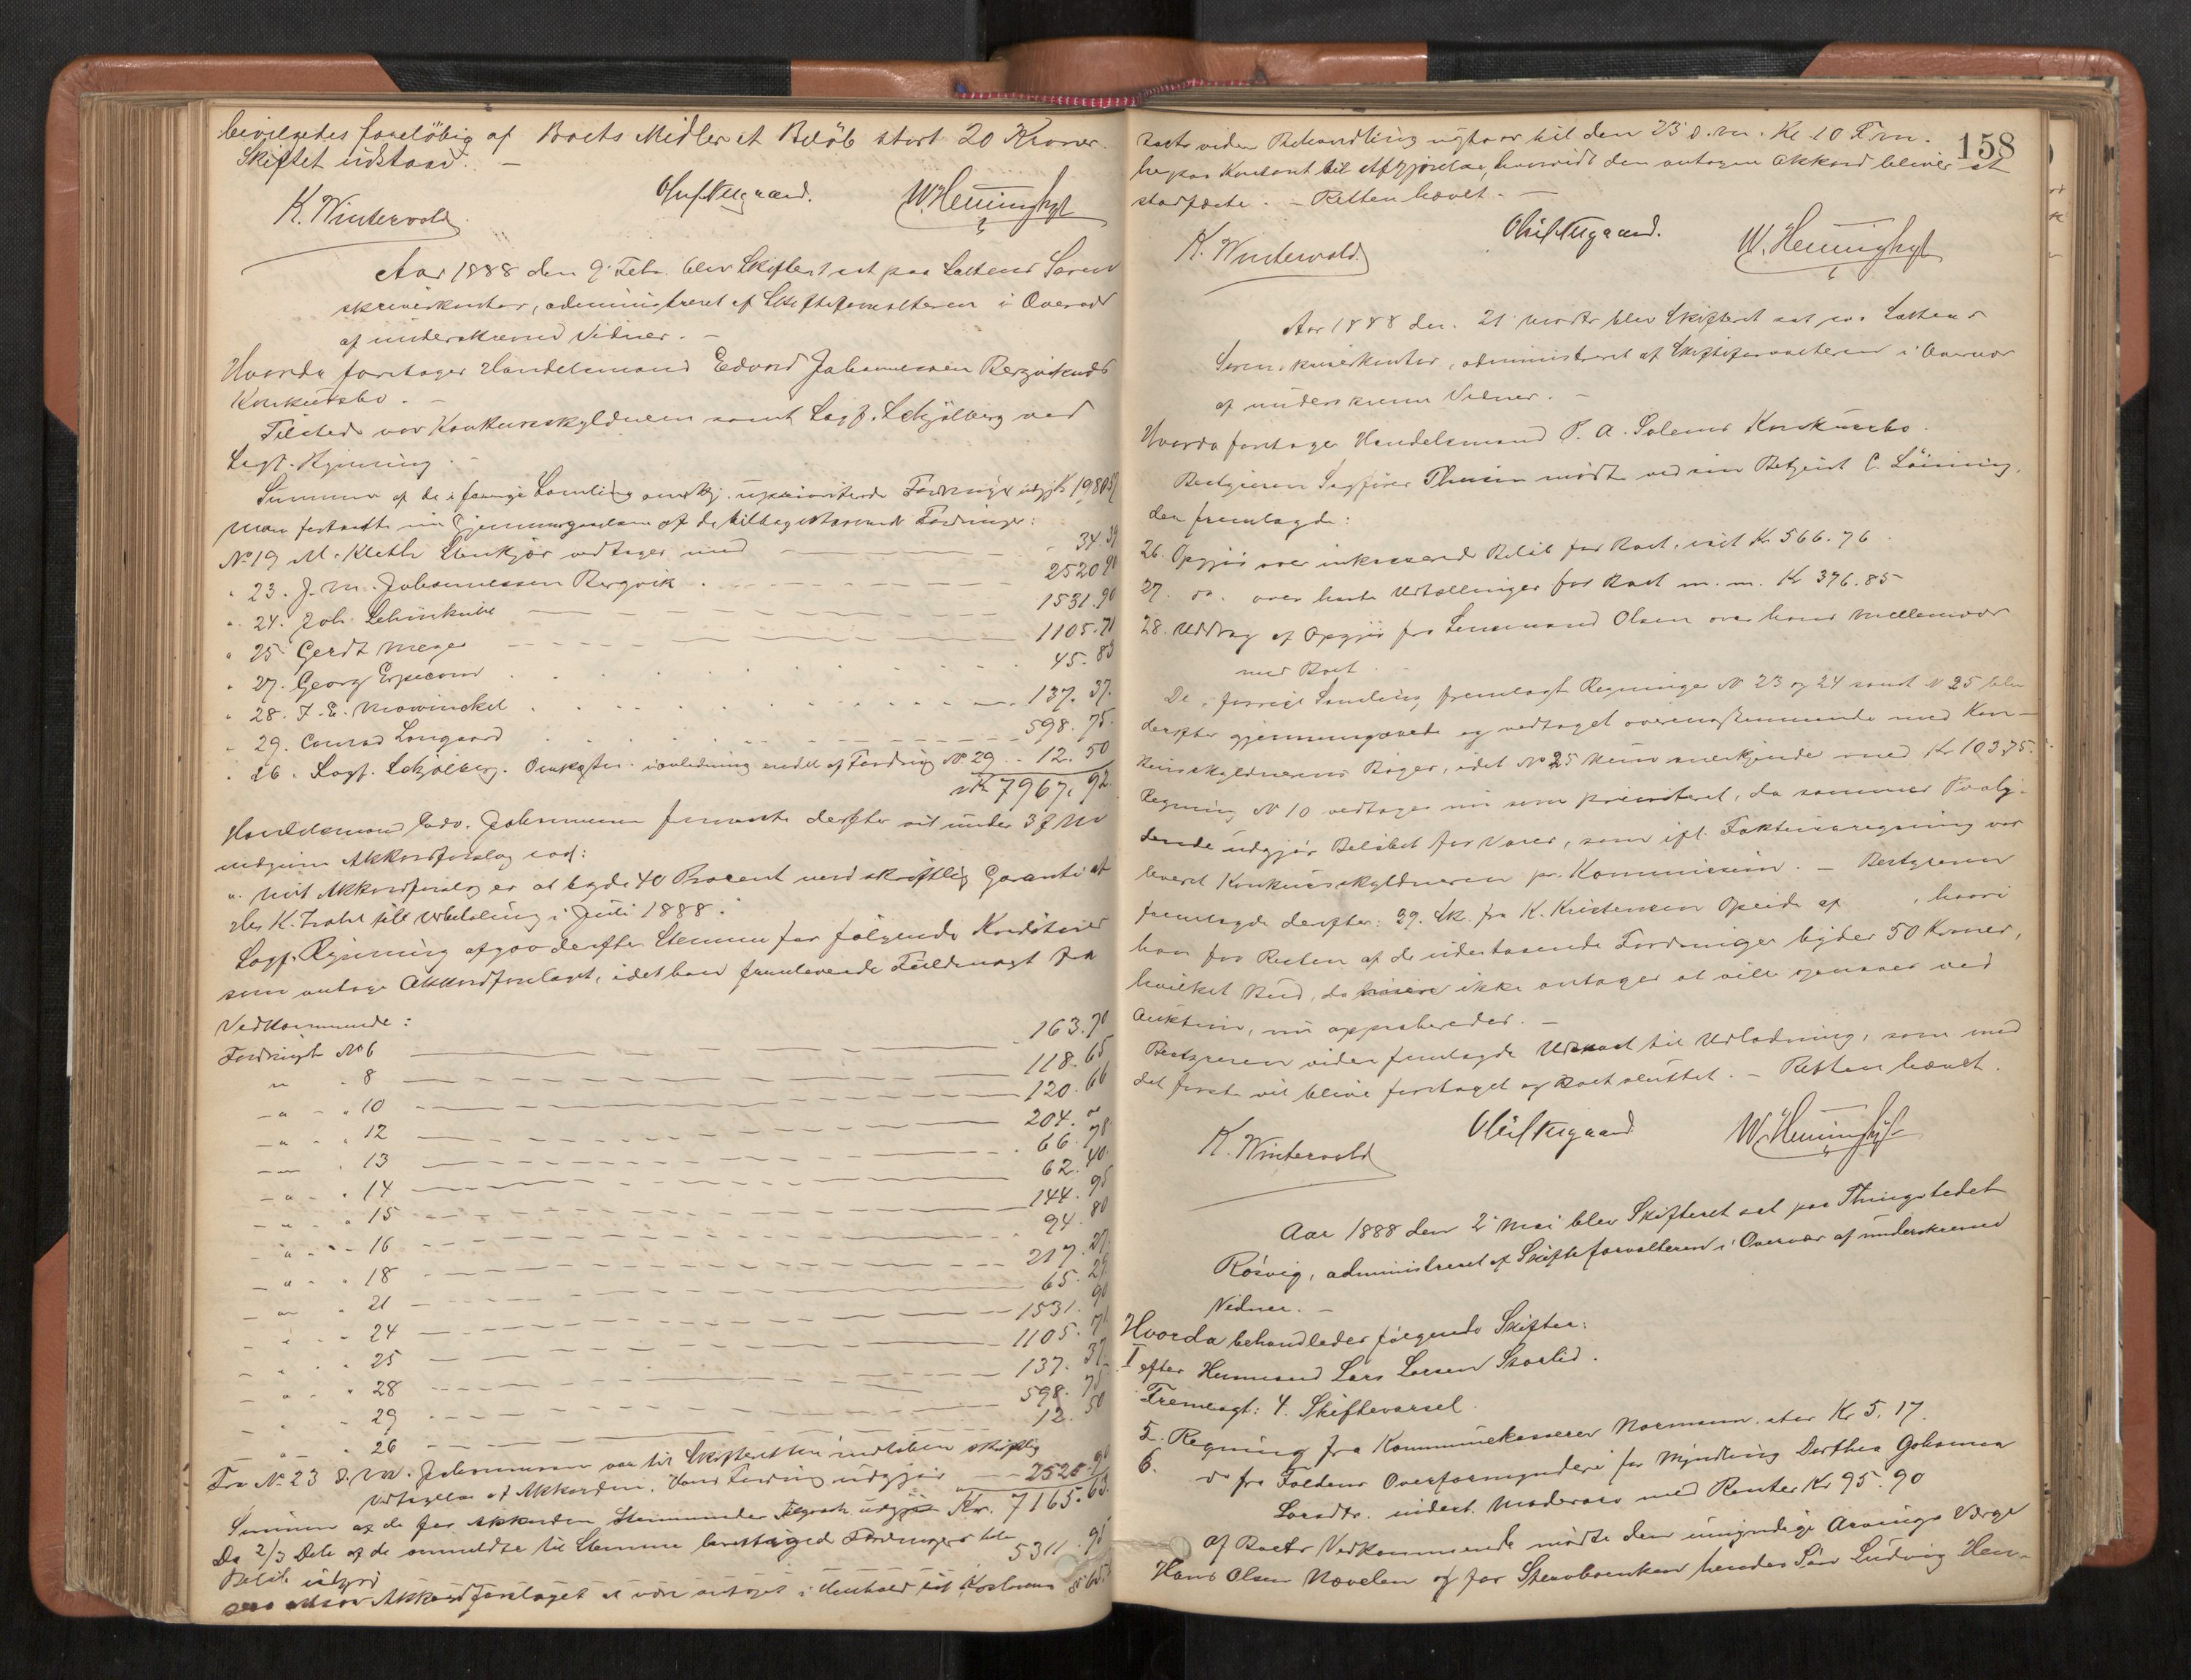 bevilgedes foreløbig af Boets Midler et Beløb stort 20 Kroner.
Skiftet udstaar. —
K. Wintervold. W. Henninghys
Aar 1888 den 9' Febr. blev Skifteret sat paa Saltens Soren
skriverkontor, administreret af Skifteforvalteren i Overvær
af underskrevne Vidner. —
Hvorda foretoges Handelsmand Edvard Johannessen Bergviknæs
Konkursbo. —
Tilstede var Konkursskyldneren samt Sagf. Schjølberg ved
Sagf. Rynning. —
Summen af de i forrige Samling uprioriterede Fordringer
Man fortsatte nu Gjennemgaaelsen af de tilbagestaaende Fordringer:
No 19 M. Kleth Stenkjær vedtages med 34.39
" 23. J. M. Johannessen Bergvik 2520.90
" 24. Joh. 1531.90
" 25 Gerdt Meyer 1105.71
" 27. Georg 45.83
" 28. F. E. Mowinckel 137.37.
" 29. Conrad Langaard 598.75.
" 26. Sagf. Schjølberg. Omkostn. i anledning af Fordring No 29 12.50
Kr 7967.92.
Handelsmand Edv. Johannessen fremsatte derefter sit under
Akkordforslag saal:
" Mit Akkordforslag er at byde 40 Procent med skriftlig Garanti af
Hr. K. Zahl til Udbetaling i Juli 1888."
Sagf. Rynning afgav derefter Stemme for følgende Kreditorer
som antage Akkordforslaget, idet han fremleverede Fuldmagt fra
Vedkommende:
Fordringh. No 6 163.70
" " 8 118.65
— " — " 10 120.66
— " — " 12 204.
— " 13 66.78
— " — " 14 62.40.
— " — " 15 144.95
" — 16 94.80
— " — " 18 217.27.
— " 21 65.29
— 24 1531.90
" 25 1105.71.
— " " 28 137.37
— 29 598.75
— " 26 12.50
Fra No 23 J. M. Johannessen var til Skifteretten indløben skriftlig
Vedtagelse af Akkorden. Hans Fordring udgjør 2520.90
Summen af de for Akkorden stemmende udgjør Kr. 7165.63.
Da 2/3 Dele af de anmeldte til Stemme berettigede Fordringers
Beløb udgjør 5311.95
Akkordforslaget at være antaget i Henhold til
158
Boets videre Behandling udstaar til den 23 d. m. Kl 10 Fm.
her paa Kontoret til Afgjørelse, hvorvidt den antagne Akkord bliver at
stadfæste. — Retten hævet. —
K. Wintervold. W. Henninghys
Aar 1888 den 21' Marts blev Skifteret sat paa Saltens
Sorenskriverkontor, administreret af Skifteforvalteren i Overvær
af underskrevne Vidner. —
Hvorda foretoges Handelsmand P. A. Solems Konkursbo.
Bestyreren Sagfører mødte ved sin Betjent C. Lønning,
der fremlagde:
26. Opgjør over inkasserede Beløb for Boet, stort Kr 566.76
27. do. over havte Udtællinger for Boet m. m. Kr 376.85
28. Uddrag af Opgjør fra Lensmand Olsen over hans Mellemvær
med Boet.
De i forrige Samling fremlagte Regninger No 23 og 24 samt No 25 blev
derefter gjennemgaaede og vedtaget overensstemmende med Kon-
kursskyldnerens Bøger, idet No 25 kun anerkjendes med Kr 103.75.
Regning No 10 vedtages nu som prioriteret, da sammes Paaly-
dende udgjør Beløbet for Varer, som ifl. Fakturaregning var
leveret Konkursskyldneren pr. Kommission. — Bestyreren
fremlagde derefter: 29. Sk. fra K. Kristensen Opeide af , hvori
han for Resten af de udestaaende Fordringer byder 50 Kroner,
hvilket Bud, da ikke antages at ville opnaaes ved
Auktion, nu approberedes. —
Bestyreren videre fremlagde Udkast til Udlodning, som med
det første vil blive foretaget og Boet sluttet. — Retten hævet.
K. Wintervold W. Henninghys
Aar 1888 den 2' Mai blev Skifteret sat paa Thingstedet
Røsvig, administreret af Skifteforvalteren i Overvær af underskrevne
Vidner. —
Hvorda behandledes følgende Skifter:
I efter Husmand Lars Larsen Storlid.
Fremlagt: 4. Skiftevarsel.
5. Regning fra Kommunekasserer Normann, stor Kr 5.17.
6. do fra Foldens Overformynderi for Myndling Dorthea Johanna
Larsdtr. indest. Mødrearv med Renter Kr 95.90
Af Boets Vedkommende mødte den umyndige Arvings Værge
Hans Olsen Nævelen og for Stervboenken hendes Søn Ludvig Hen-